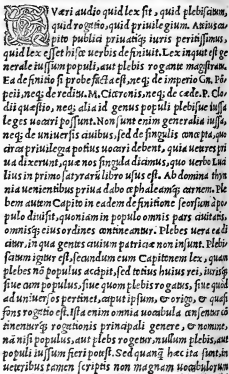 QVæri audio quid lex sit, quid plebiscitum,
quid rogatio, quid priuilegium. Ateius capito
publicæ priuatiq; iuris peritissimus,
quid lex esset hisce uerbis definiuit. Lex inquit est generale
iussum populi, aut plebis rogante magistratu.
Ea definitio si probe facta est, neq; de imperio Cn. Pompeii,
neq; de reditu. M. Ciceronis, neq; de cæde. P. Clodii
quæstio, neq; alia id genus populi plebisue iussa
leges uocari possunt. Non sunt enim generalia iussa,
neq; de uniuersis ciuibus, sed de singulis concepta, quocirca
priuilegia potius uocari debent, quia ueteres priua
dixerunt, quæ nos singula dicimus, quo uerbo Lucilius
in primo satyrarū libro usus est.
Plebem
autem Capito in eadem definitione seorsum a populo
diuisit, quoniam in populo omnis pars ciuitatis,
omnisq; eius ordines contineantur. Plebes uero ea dicitur,
in qua gentes ciuium patriciæ non insunt. Plebiscitum
igitur est, secundum eum Capitonem lex, quam
plebes nō populus accipit, sed totius huius rei, iurisq;
siue cum populus, siue quom plebis rogatus, siue quid
ad uniuersos pertinet, caput ipsum, & origo, & quasi
fons rogatio est. Ista enim omnia uocabula
rogationis principali genere, & nomine.
nā nisi populus, aut plebs rogetur, nullum plebis, aut
populi iussum fieri potest. Sed quanq̃ hæc ita sunt, in
ueteribus tamen scriptis non magnam uocabulorum